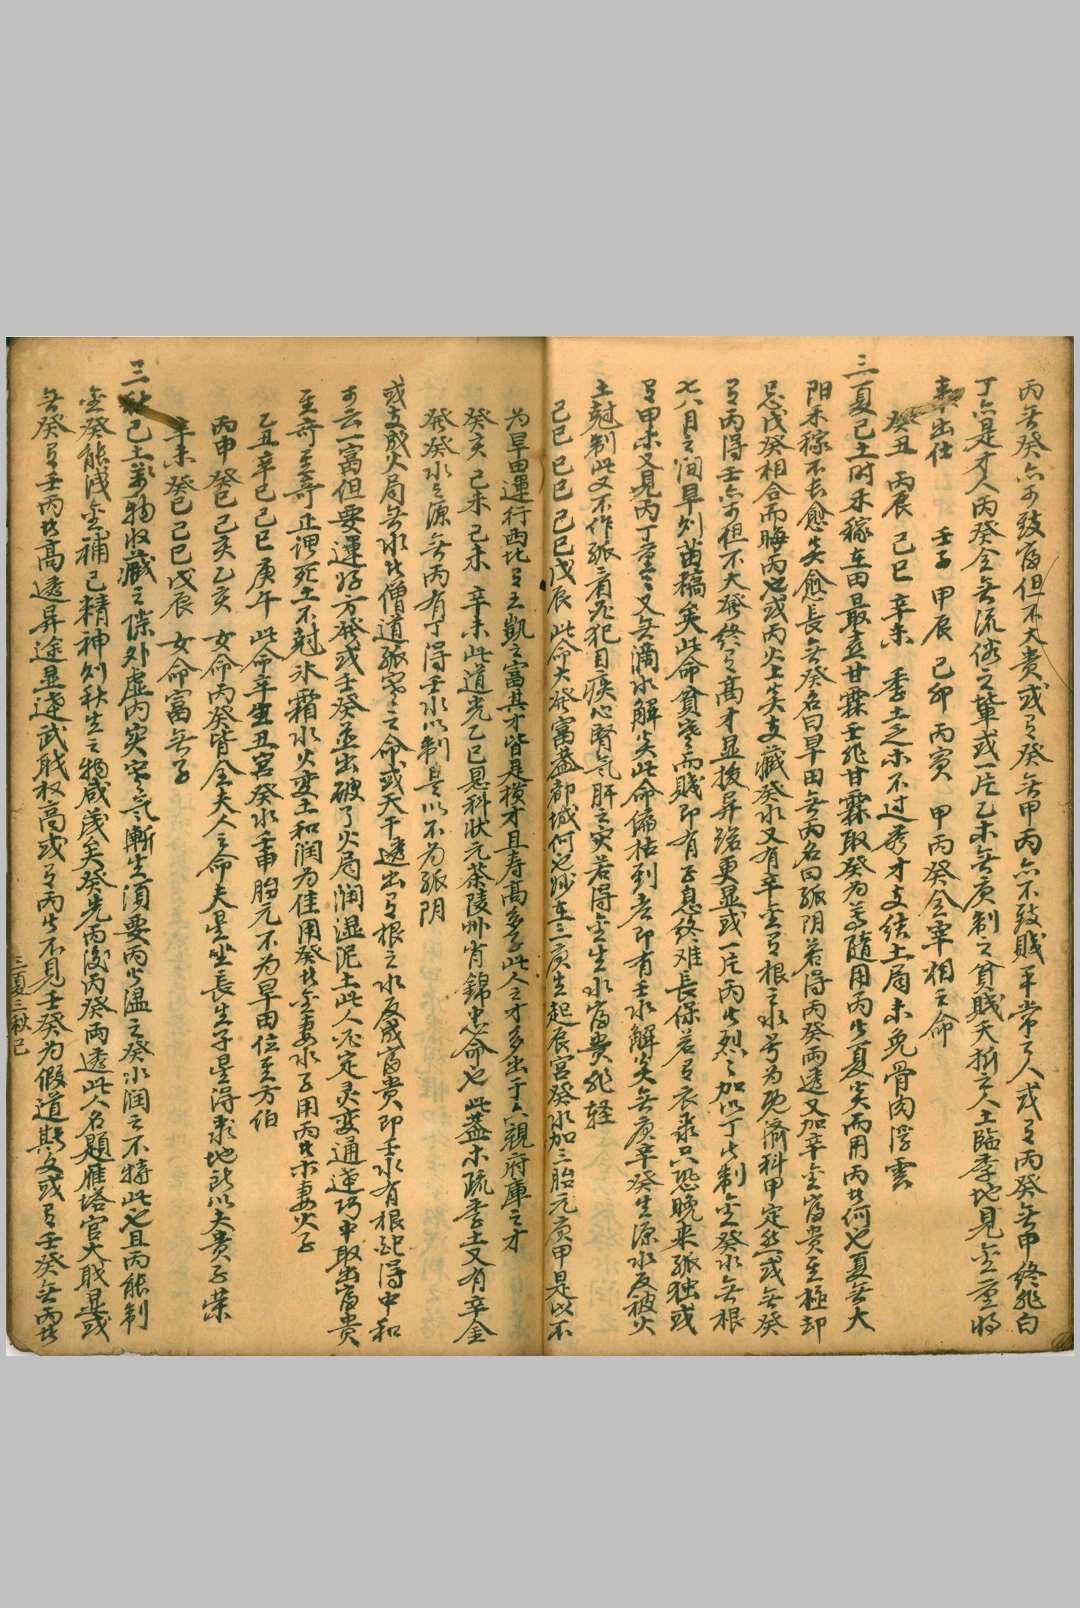 丙無癸亦可致富但不大貴或有癸無甲丙亦不致賤平常之人或有丙癸無甲終非白
丁亦是才人丙癸全無流俗之輩或一片乙木無庚制之貧賤夭折之人土臨季地見金重將
來出仕　壬子　甲辰　己卯　丙寅　甲丙癸全宰相之命
癸丑　丙辰　己巳　辛未　季土乏木不过秀才支結土局未免骨肉浮雲
三夏己土時禾稼在田最喜甘霖壬非甘霖取癸為要隨用丙火夏炎而用丙者何也夏無大
陽禾稼不長愈炎愈長無癸名曰旱田無丙名曰孤阴若得丙癸兩透又加辛金富貴至極却
忌戊癸相合而晦丙也或丙火上炎支藏癸水又有辛金有根之水号為既濟科甲定然或無癸
有丙得壬亦可但不大發終有高才显拔昇踏更显或一片丙火烈烈加以丁火制金癸水無根
七八月之间旱则苗稿矣此命貧窮而賤即有子息终难長保若有衣录只恐晚来孤独或
有甲木又見丙丁重重又無滴水解炎此命偏枯到老即有壬水解炎無庚辛癸生源水反被火
土尅制此又不作孤看尤犯目疾心腎氣肝之灾若得金生水富貴非轻
己巳　己巳　己巳　戊辰　此命大發富蓋都城何也妙在三庚生起辰宮癸水加三胎元庚甲是以不
为旱田運行西北有王凱之富其才皆是横才且寿高多子此人之才多出于六親府庫之才
癸亥　己未　己未　辛未　此道光乙巳恩科状元茶陵州肖錦忠命也此蓋木疏季土又有辛金
發癸水之源無丙有丁得壬水以制是以不为孤阴
或支成火局無水者僧道孤寡之命或天干透出有根之水反成富貴即壬水有根配得中和
可云一富但要運好方發或壬癸並出破了火局润湿泥土此人不定灵变通達巧中取出富貴
至奇至奇正谓死土不尅冰霜水火变土和润为佳用癸者金妻水子用丙者木妻火子
乙丑　辛巳　己巳　庚午　此命辛生丑宮癸水壬申胎元不为旱田位至方伯
丙申　癸巳　己亥　乙亥　女命丙癸皆全夫人之命夫星坐長生子星得录地所以夫貴子荣
辛未　癸巳　己巳　戊辰　女命富無子
三秋己土萬物收藏之際外虚内实寒氣漸生須要丙火温之癸水润之不特此也且丙能制
金癸能洩金補己精神则秋生之物咸茂矣癸先丙後丙癸兩透此人名題雁塔官大戝显或
無癸有壬丙者高透昇途显達武戝权高或有丙火不見壬癸为假道斯文或有壬癸無丙者
三夏三秋己